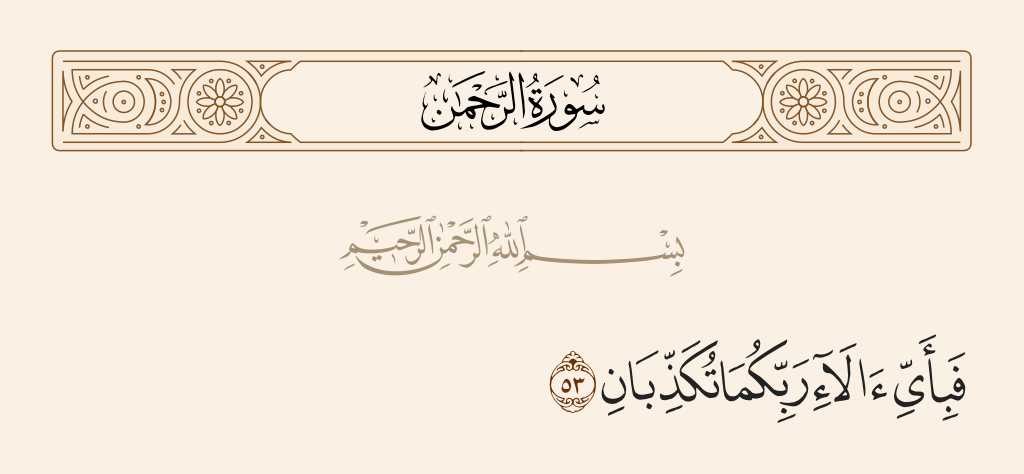 سُورَةُ الرَّحْمَٰن
بِسْمِ ٱللَّهِ ٱلرَّحْمَٰنِ ٱلرَّحِيمِ
فَبِأَيِّ ءَالَآءِ رَبِّكُمَا تُكَذِّبَانِ ٥٣